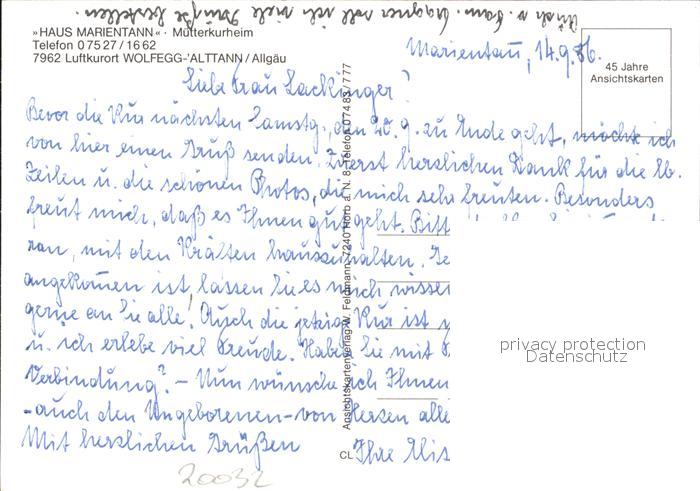 Auch v. Fam. Wagner soll ich viele Grüße bestellen.
»HAUS MARIENTANN« · Mütterkurheim
Telefon 0 75 27 / 16 62
7962 Luftkurort WOLFEGG-'ALTTANN / Allgäu
Marientann, 14.9.86.
45 Jahre
Ansichtskarten
Liebe Frau Lackinger!
Bevor die Kur nächsten Samstg., den 20.9. zu Ende geht, möchte ich
von hier einen Gruß senden. Zuerst herzlichen Dank für die lb.
Zeilen u. die schönen Photos, die mich sehr freuten. Besonders
freut mich, daß es Ihnen gut geht. Bitt
ran, mit den Kräften hauszuhalten.
angekommen ist, lassen Sie es mich wissen
gerne an Sie alle! Auch die jetzige Kur ist
u. ich erlebe viel Freude. Haben Sie mit
Verbindung? - Nun wünsche ich Ihnen
- auch den Ungeborenen - von Herzen alle
Mit herzlichen Grüßen
Ihre
Ansichtskartenverlag W. Feldmann, 7240 Horb a. N. 8, Telefon 0 74 83 / 7 77
CL
privacy protection
Datenschutz
20032